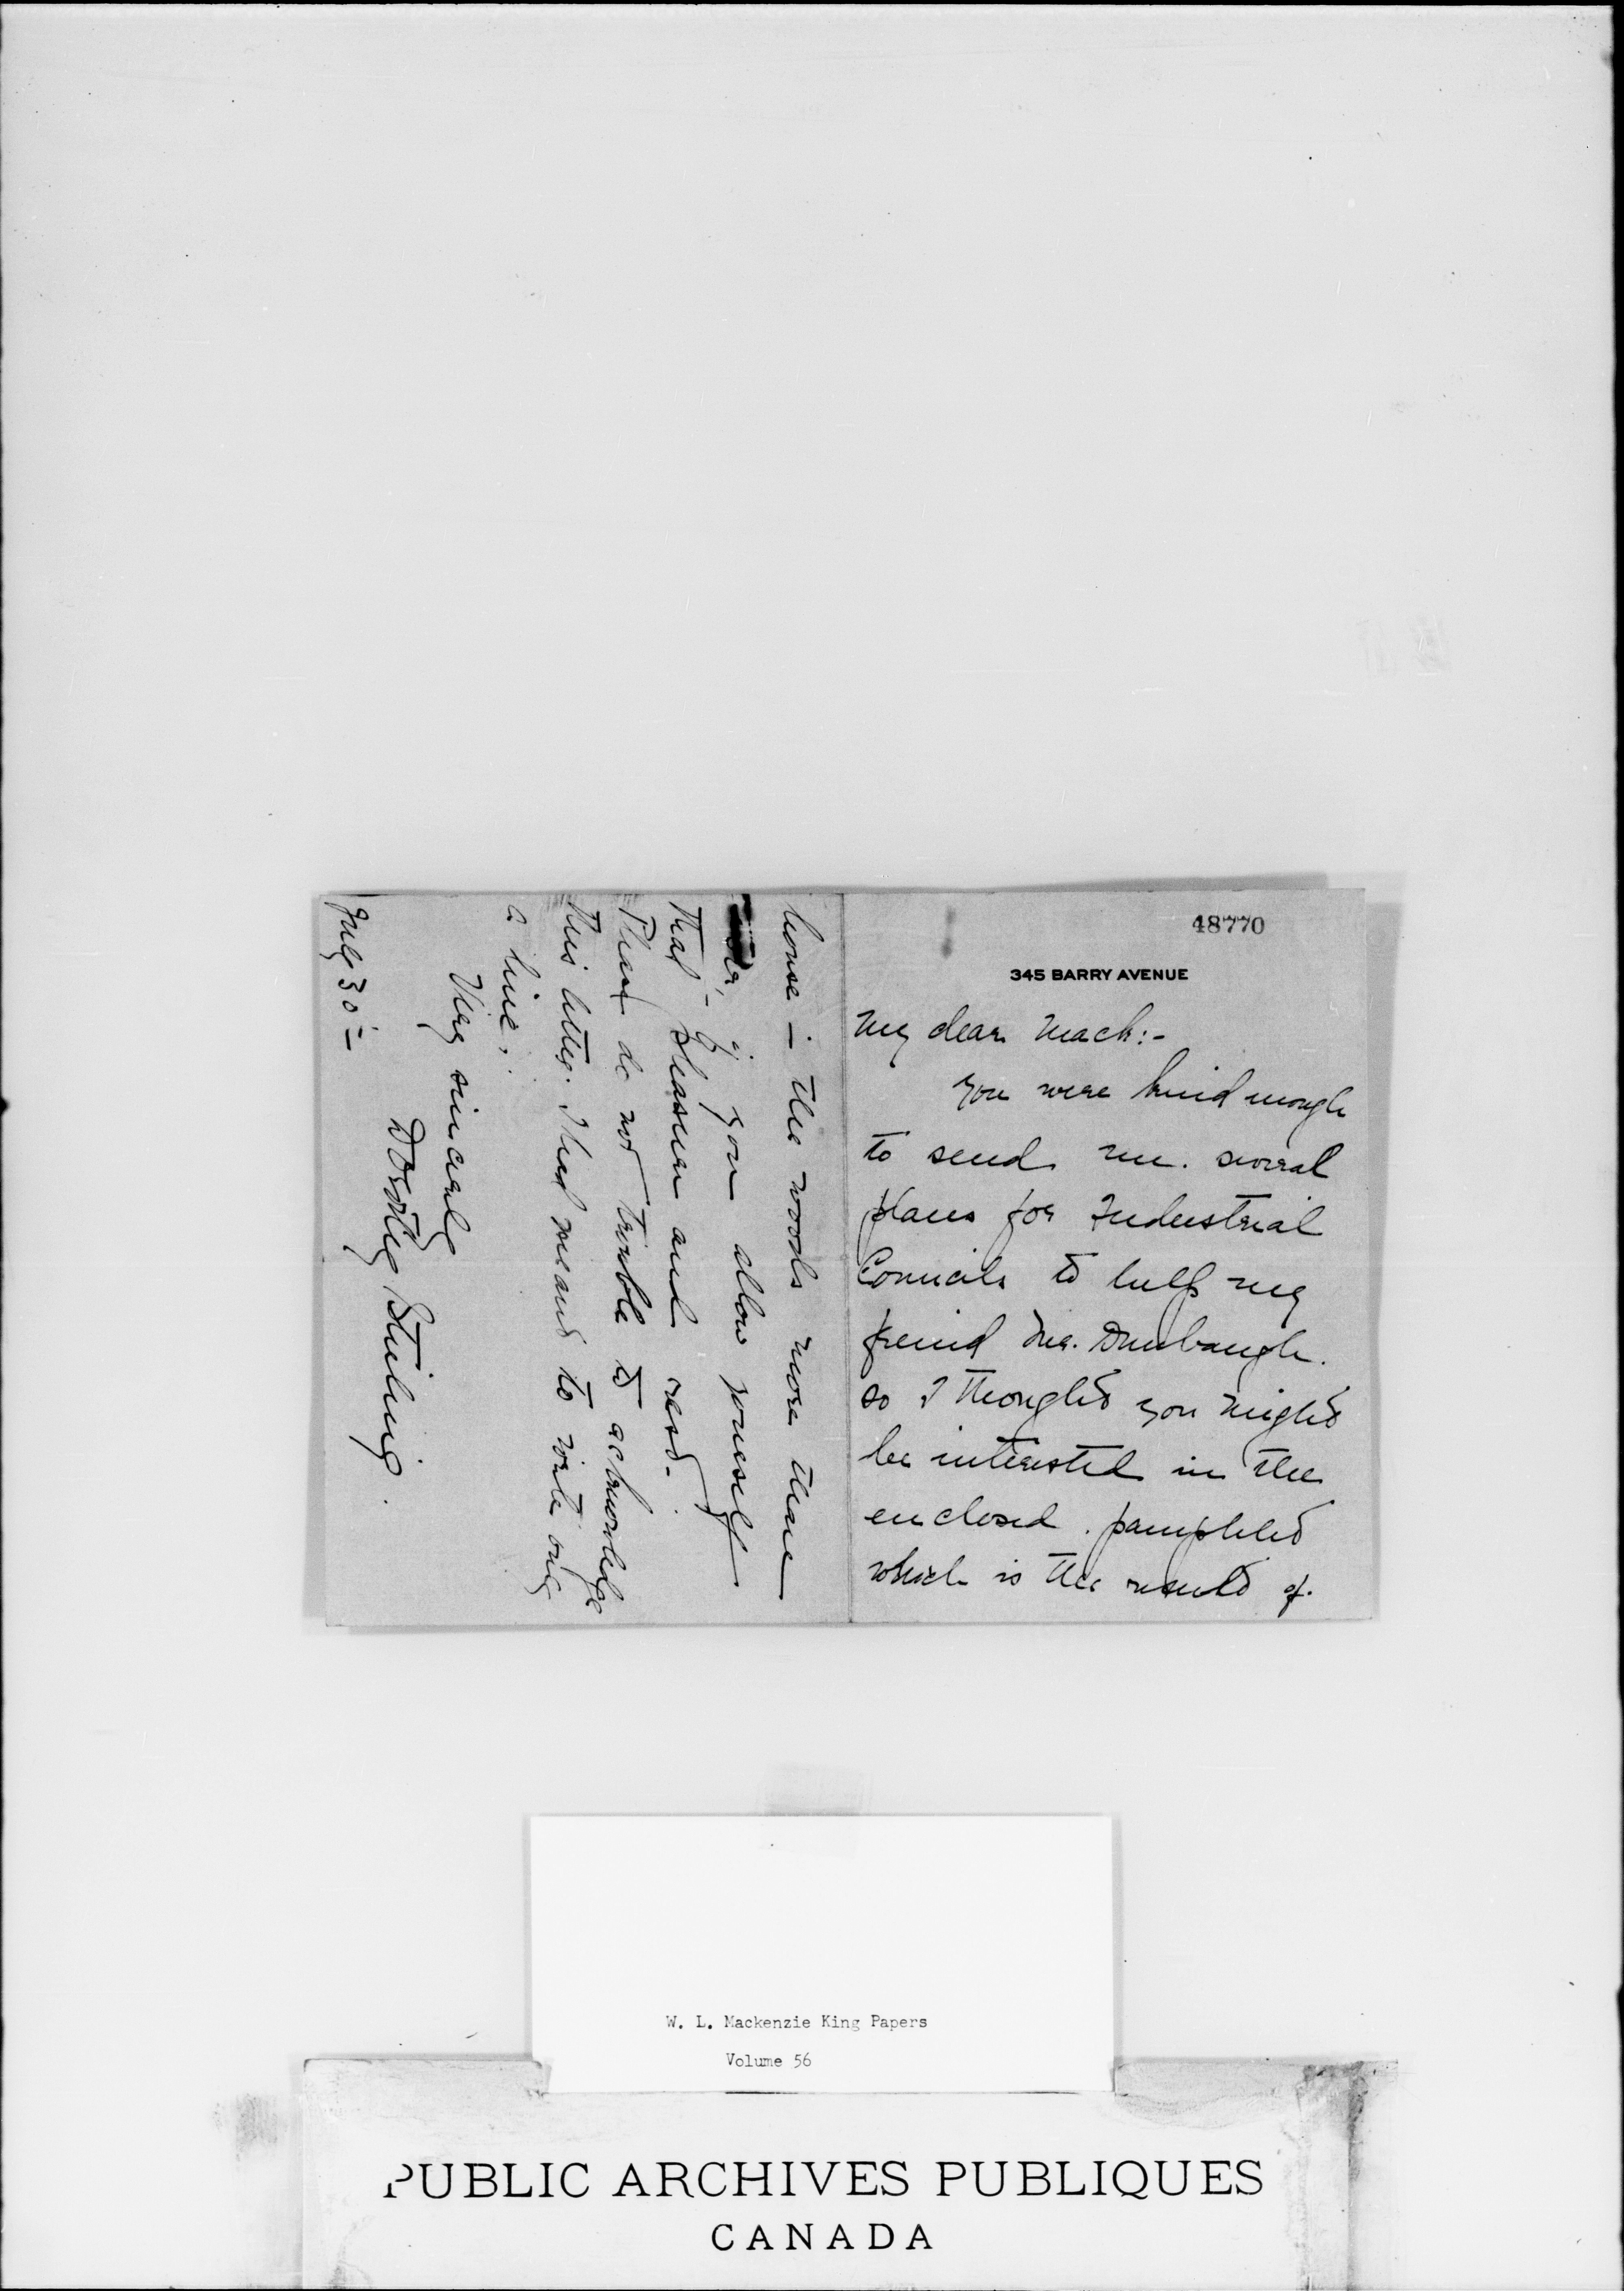 48770
345 BARRY AVENUE
My dear Mack:-
You were kind enough
to send me several
plans for Industrial
Councils to help my
friend Mr. Dumbaugh.
so I thought you might
be interested in the
enclosed pamphlet
which is the result of
house — the woods more than
- if you allow yourself
that pleasure and rest.
Please do not trouble to acknowledge
this letter. I had meant to write only
a line.
Very sincerely
Dorothy Stirling.
July 30th
W. L. Mackenzie King Papers
Volume 56
PUBLIC ARCHIVES PUBLIQUES
CANADA